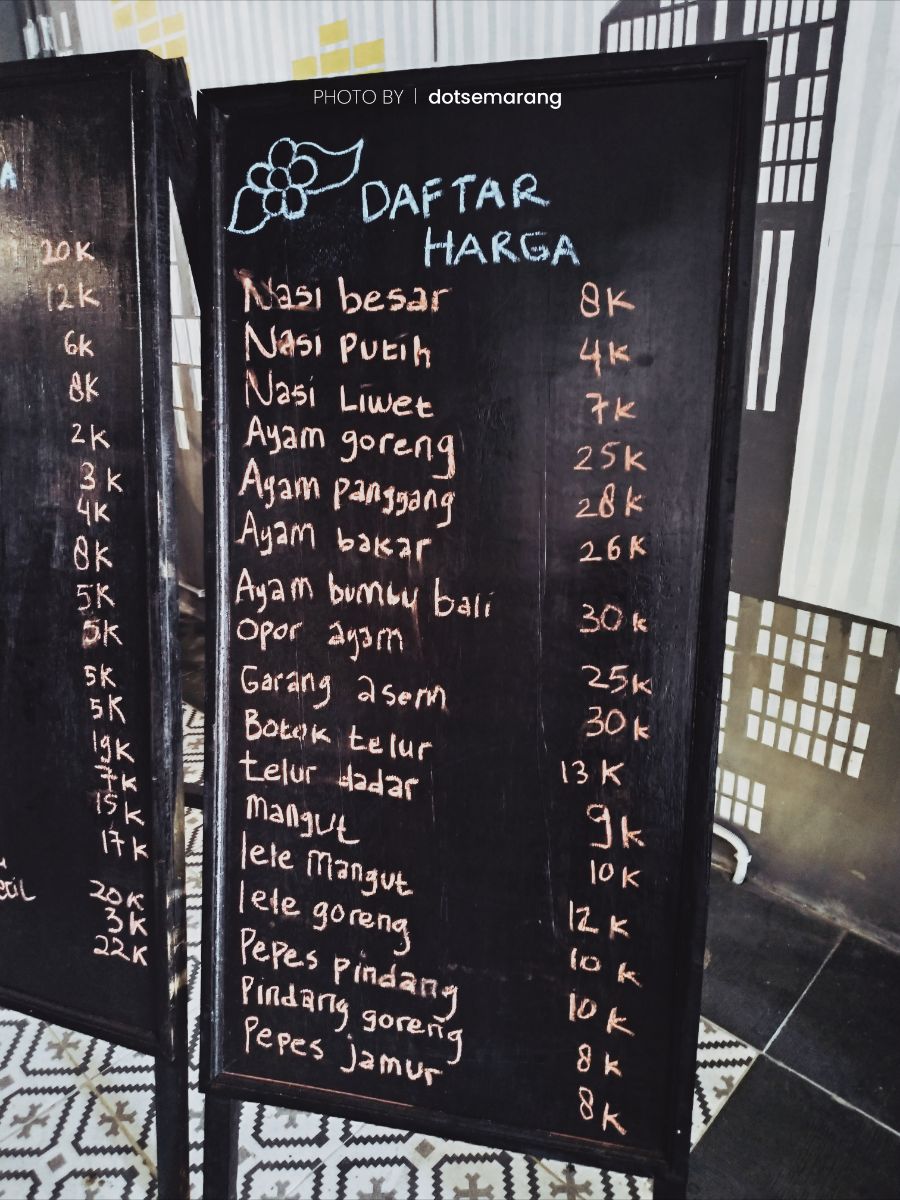 PHOTO BY | dotsemarang
A
20K
12K
6K
8K
2K
3K
4K
8K
5K
5K
5K
5K
19K
7K
15K
17K
20K
3K
22K
DAFTAR
HARGA
Nasi besar 8K
Nasi Putih 4K
Nasi Liwet 7K
Ayam goreng 25K
Ayam panggang 28K
Ayam bakar 26K
Ayam bumbu bali 30K
Opor ayam 25K
Garang asem 30K
Botok telur 13K
telur dadar 9K
mangut 10K
lele mangut 12K
lele goreng 10K
Pepes pindang 10K
Pindang goreng 8K
Pepes jamur 8K